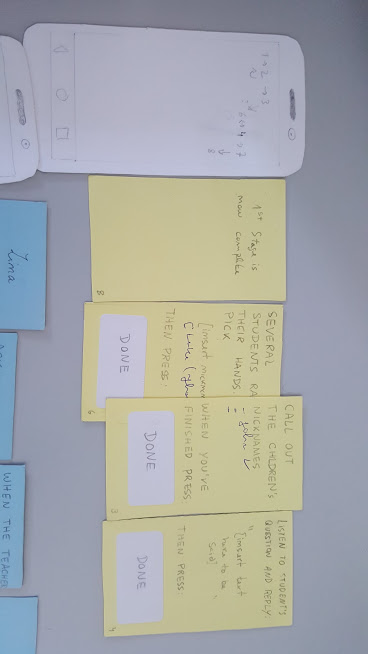 1 → 2 → 3
6 ← 4 → 7
8
1st Stage is
now complete
8
SEVERAL
STUDENTS RA
THEIR HANDS.
PICK
[insert
THEN PRESS:
DONE
6
CALL OUT
THE CHILDREN'S
NICKNAMES
- John
WHEN YOU'VE
FINISHED PRESS
DONE
3
LISTEN TO STUDENT'S
QUESTION AND REPLY:
[insert text
here to be
said]
THEN PRESS:
DONE
4
Lima
WHEN THE TEACHER